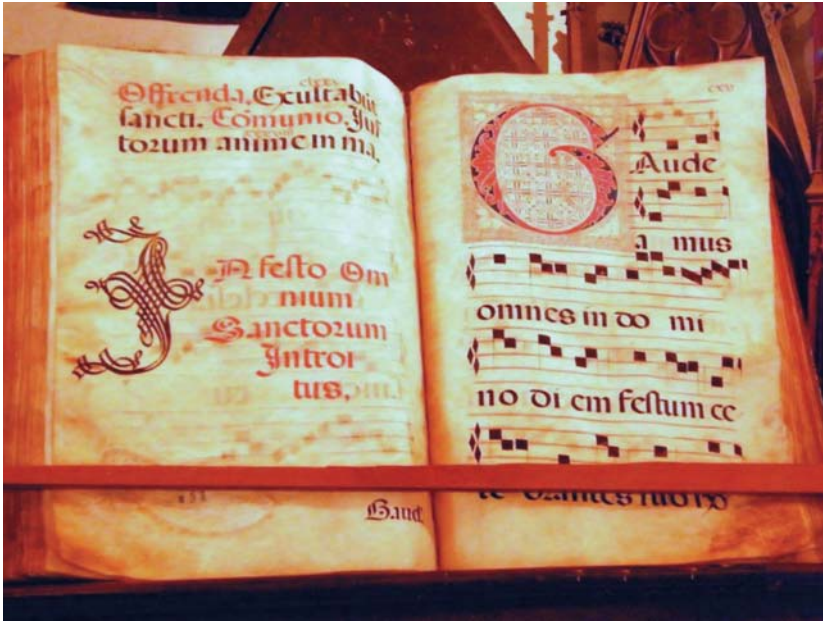 Offrenda.
sancti. Comunio. Jus
torum anime in ma.
IN festo Om
nium
Sanctorum
Introi
tus.
Gaud
GAude
a mus
omnes in do mi
no di em festum ce